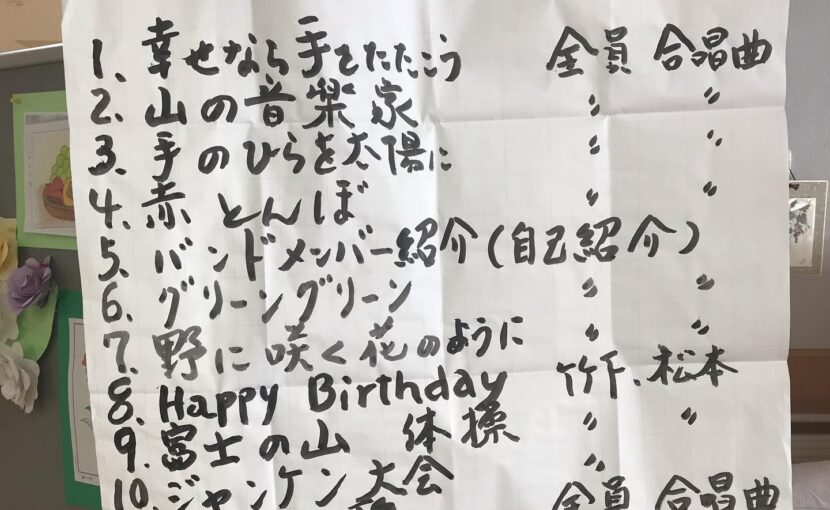 1、幸せなら手をたたこう 全員 合唱曲
2、山の音楽家 〃 〃
3、手のひらを太陽に 〃 〃
4、赤とんぼ 〃 〃
5、バンドメンバー紹介(自己紹介)
6、グリーングリーン 〃 〃
7、野に咲く花のように 〃 〃
8、Happy Birthday 竹下、松本
9、富士の山 体操 〃 〃
10、ジャンケン大会 〃
全員 合唱曲